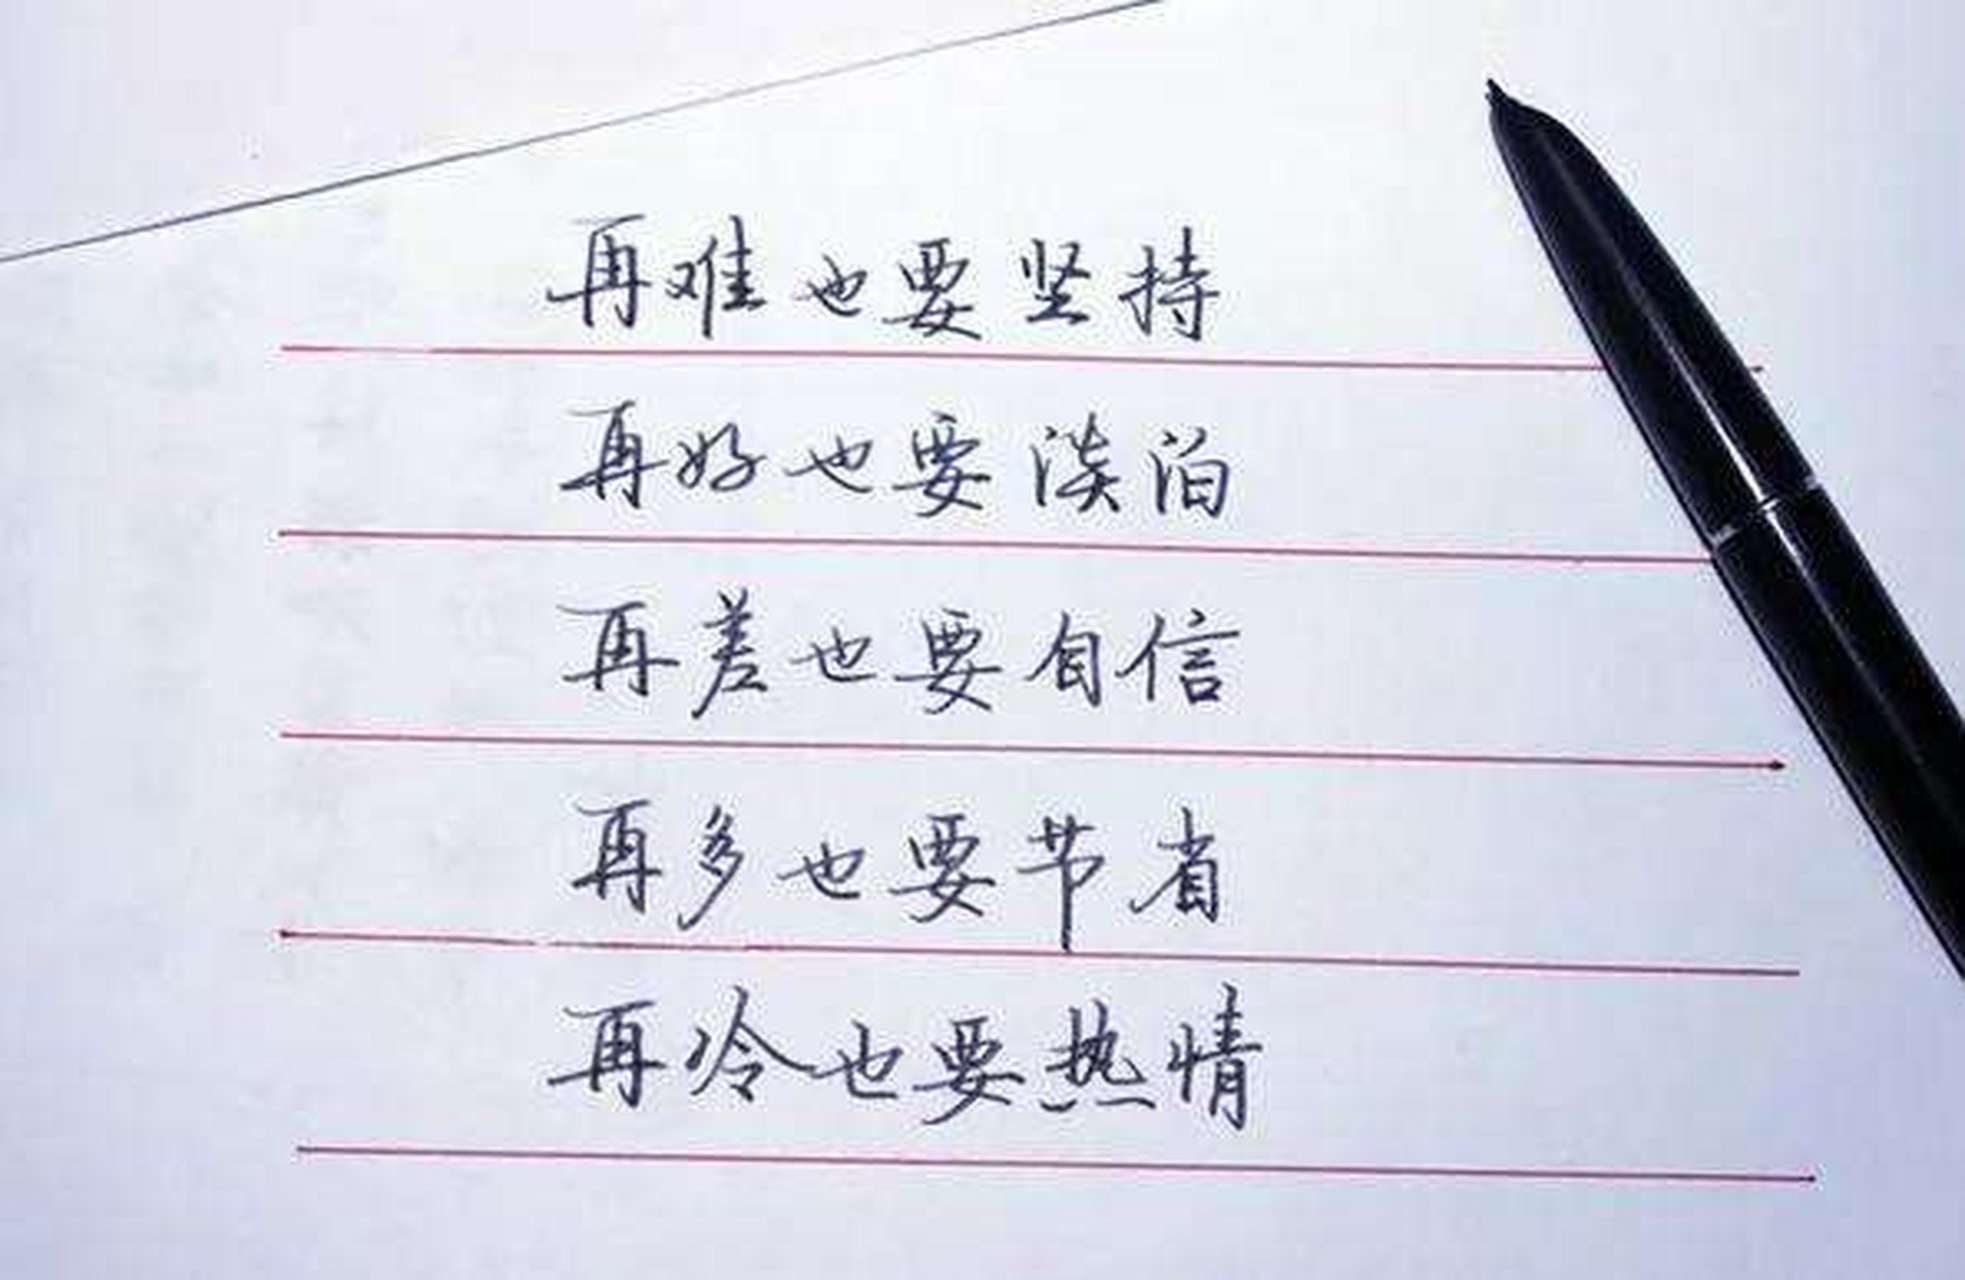 再难也要坚持
再好也要淡泊
再差也要自信
再多也要节省
再冷也要热情